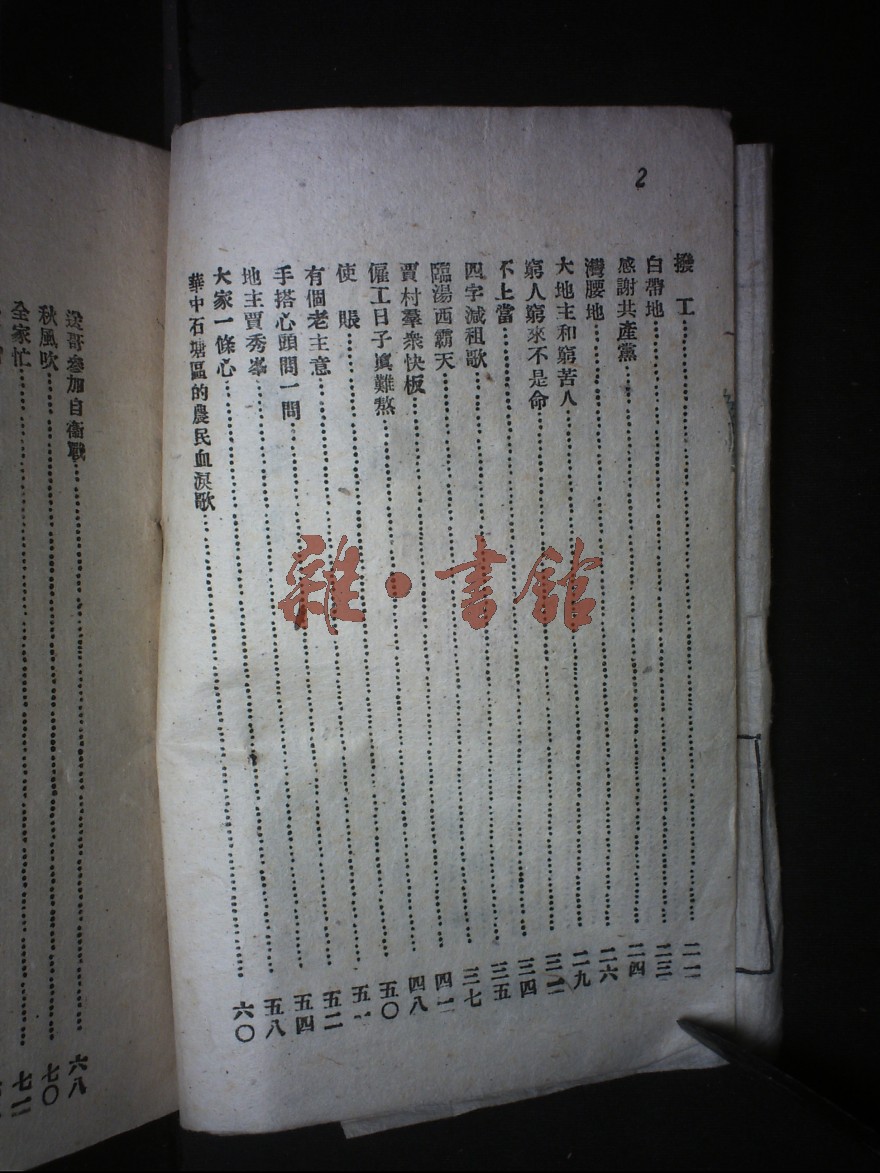 2
撥　工……二一
白帶地……二三
感謝共產黨……二四
灣腰地……二六
大地主和窮苦人……二九
窮人窮來不是命……三二
不上當……三四
四字減祖歌……三五
臨湯西霸天……三七
賈村羣衆快板……四一
僱工日子眞難熬……四八
使　賬……五〇
有個老主意……五一
手搭心頭問一問……五二
地主賈秀峯……五四
大家一條心……五八
華中石塘區的農民血淚歌……六〇
送哥參加自衞戰……六八
秋風吹……七〇
全家忙……七二
雜·書館